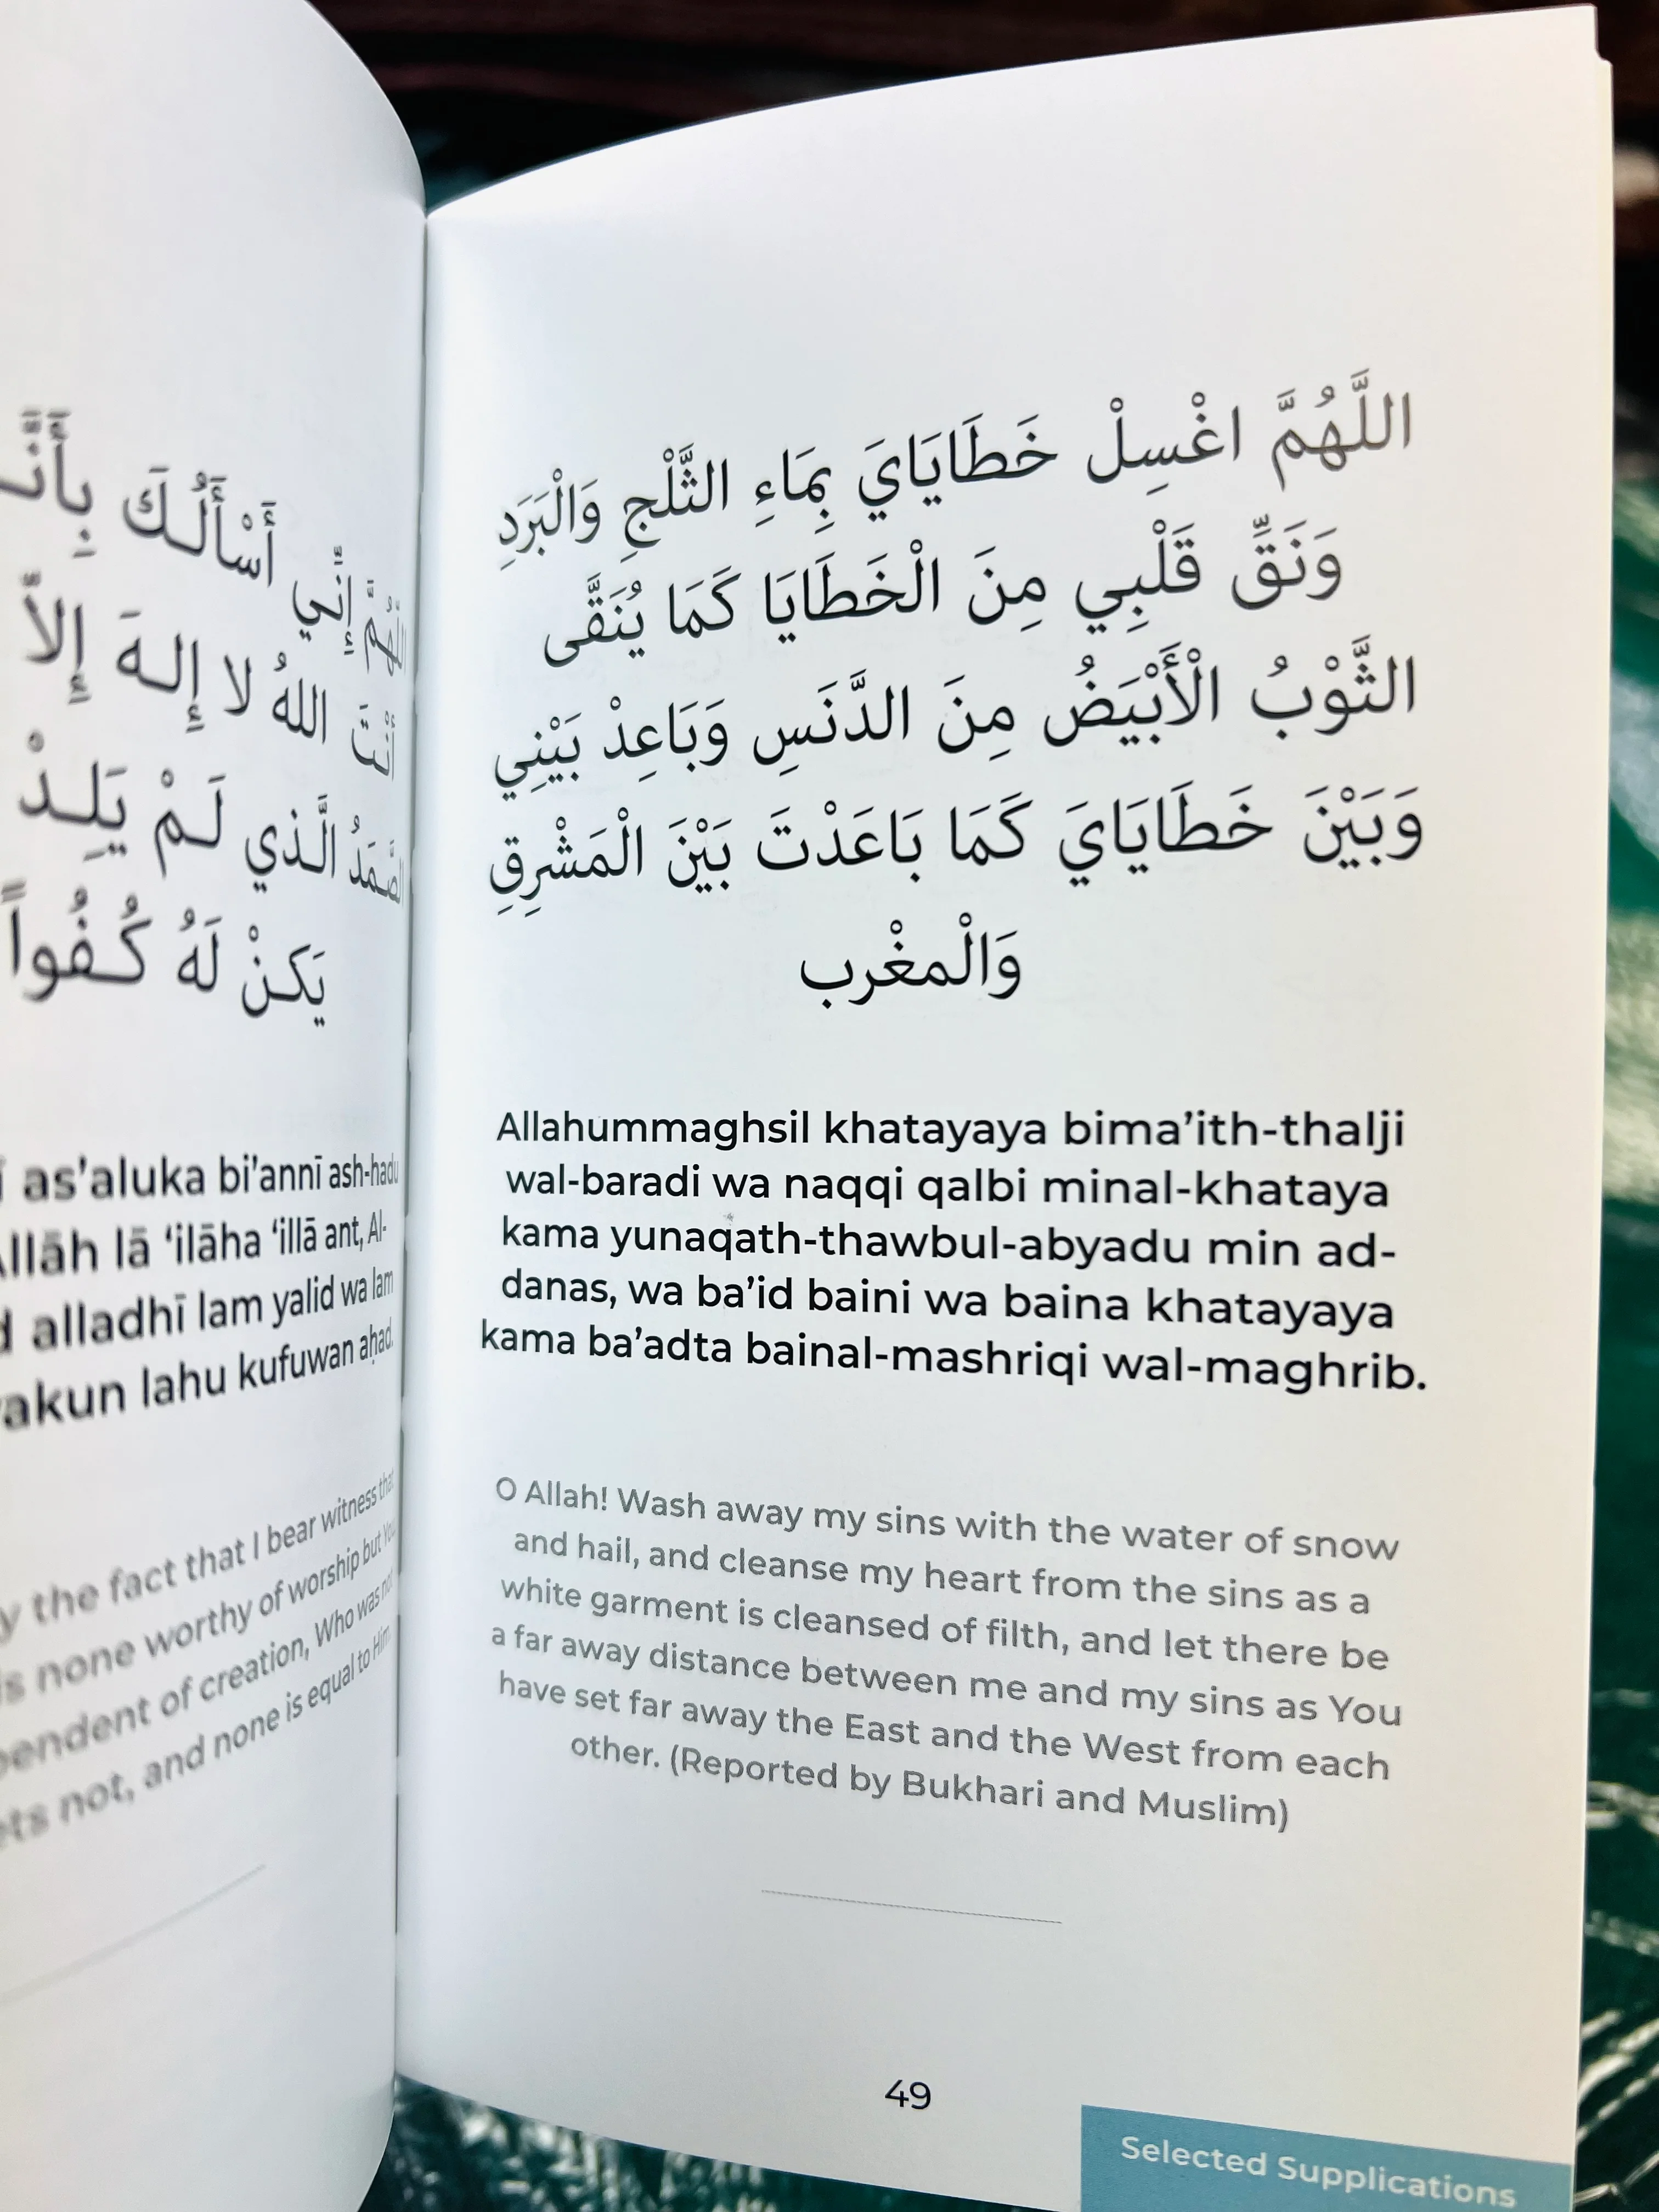 إِنِّي أَسْأَلُكَ
أَنْتَ اللهُ لا إِلهَ إِلاَّ
الَّذي لَمْ يَلِدْ
يَكنْ لَهُ كُفُواً
as’aluka bi’annī ash-hadu
lā ‘ilāha ‘illā ant, Al-
alladhī lam yalid wa lam
lahu kufuwan aḥad.
the fact that I bear witness that
none worthy of worship but You
of creation, Who was not
not, and none is equal to Him
اللَّهُمَّ اغْسِلْ خَطَايَايَ بِمَاءِ الثَّلْجِ وَالْبَرَدِ
وَنَقِّ قَلْبِي مِنَ الْخَطَايَا كَمَا يُنَقَّى
الثَّوْبُ الْأَبْيَضُ مِنَ الدَّنَسِ وَبَاعِدْ بَيْنِي
وَبَيْنَ خَطَايَايَ كَمَا بَاعَدْتَ بَيْنَ الْمَشْرِقِ
وَالْمغْرب
Allahummaghsil khatayaya bima’ith-thalji
wal-baradi wa naqqi qalbi minal-khataya
kama yunaqath-thawbul-abyadu min ad-
danas, wa ba’id baini wa baina khatayaya
kama ba’adta bainal-mashriqi wal-maghrib.
O Allah! Wash away my sins with the water of snow
and hail, and cleanse my heart from the sins as a
white garment is cleansed of filth, and let there be
a far away distance between me and my sins as You
have set far away the East and the West from each
other. (Reported by Bukhari and Muslim)
49
Selected Supplications